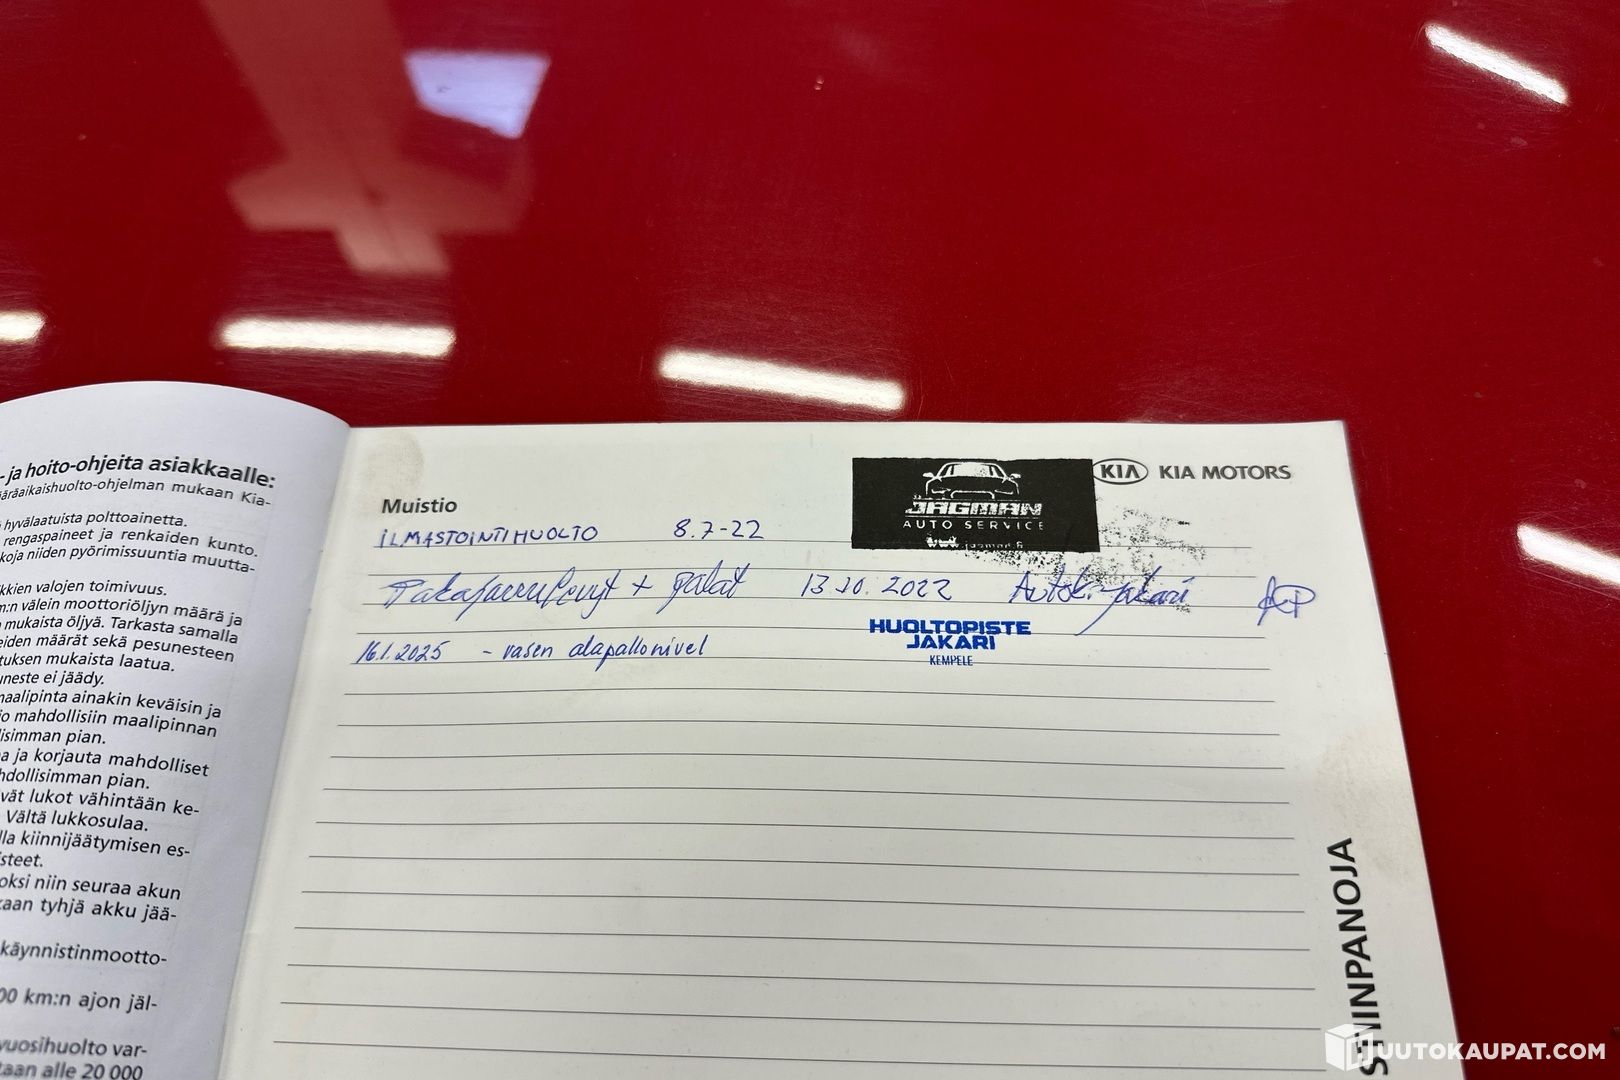 - ja hoito-ohjeita asiakkaalle:
ääräaikaishuolto-ohjelman mukaan Kia-
hyvälaatuista polttoainetta.
rengaspaineet ja renkaiden kunto.
koja niiden pyörimissuuntia muutta-
kkien valojen toimivuus.
m:n välein moottoriöljyn määrä ja
mukaista öljyä. Tarkasta samalla
eiden määrät sekä pesunesteen
tuksen mukaista laatua.
uneste ei jäädy.
maalipinta ainakin keväisin ja
io mahdollisiin maalipinnan
lisimman pian.
a ja korjauta mahdolliset
hdollisimman pian.
vät lukot vähintään ke-
Vältä lukkosulaa.
lla kiinnijäätymisen es-
isteet.
oksi niin seuraa akun
kaan tyhjä akku jää-
käynnistinmootto-
00 km:n ajon jäl-
vuosihuolto var-
taan alle 20 000
KIA KIA MOTORS
Muistio
JAGMAN
AUTO SERVICE
ILMASTOINTIHUOLTO 8.7-22
Takajarrulevyt + palat 13.10.2022 Autok. Jakari
HUOLTOPISTE
JAKARI
KEMPELE
16.1.2025 - vasen alapallonivel
INPANOJA
HUUTOKAUPAT.COM